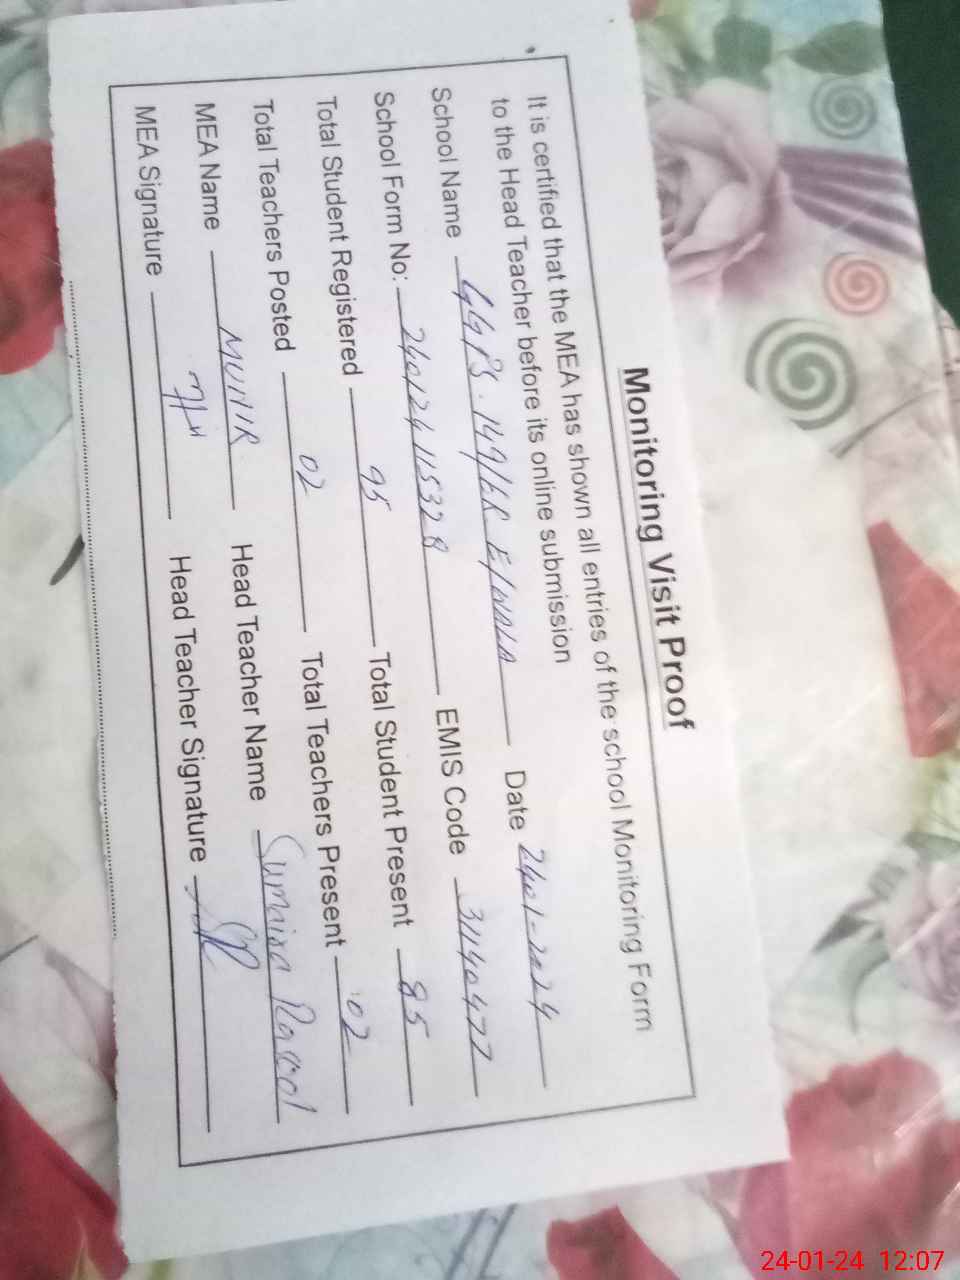 Monitoring Visit Proof
It is certified that the MEA has shown all entries of the school Monitoring Form
to the Head Teacher before its online submission
School Name GGPS. 149/6R E/WALA Date 24-01-2024
School Form No: 240124115328 EMIS Code 31140477
Total Student Registered 95 Total Student Present 85
Total Teachers Posted 02 Total Teachers Present 02
MEA Name MUNIR Head Teacher Name Sumaira Rasool
MEA Signature Head Teacher Signature
24-01-24 12:07